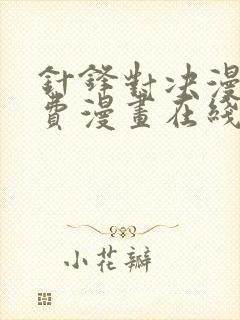 針鋒對決漫
費漫畫在綫
小花瓣